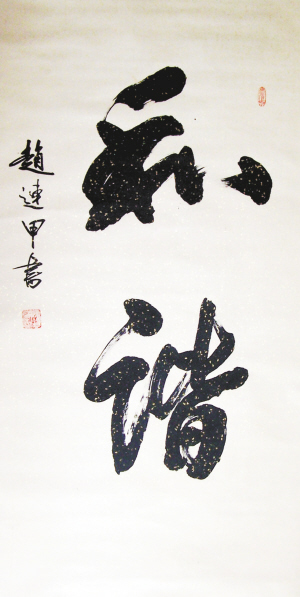 和谐
趙連甲書